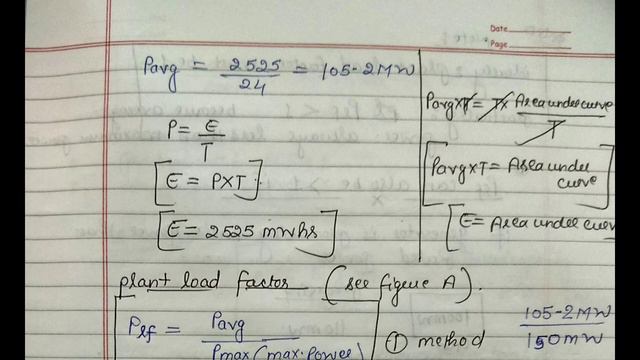 Date
Page
Pavg = 2525/24 = 105-2MW
P = E/T
[E = PXT]
[E = 2525 mwhs]
PavgXT = TX Area under curve/T
[PavgXT = Area under curve]
[E = Area under curve
plant load factor (see figure A).
Plf = Pavg/Pmax(max. Power)
① method 105-2MW/150MW